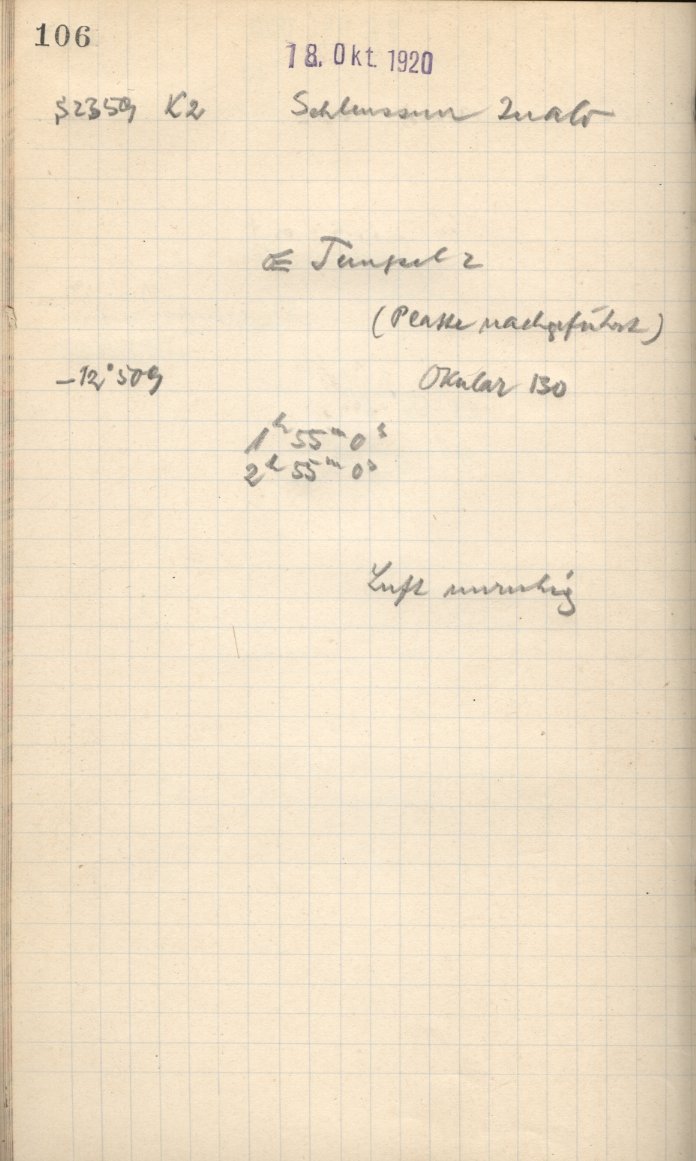 106
18. Okt. 1920
S2359 K2 Schleussner
☄ Tempel 2
(Platte nachgeführt)
-12°509 Okular 130
1h 55m 0s
2h 55m 0s
Luft unruhig